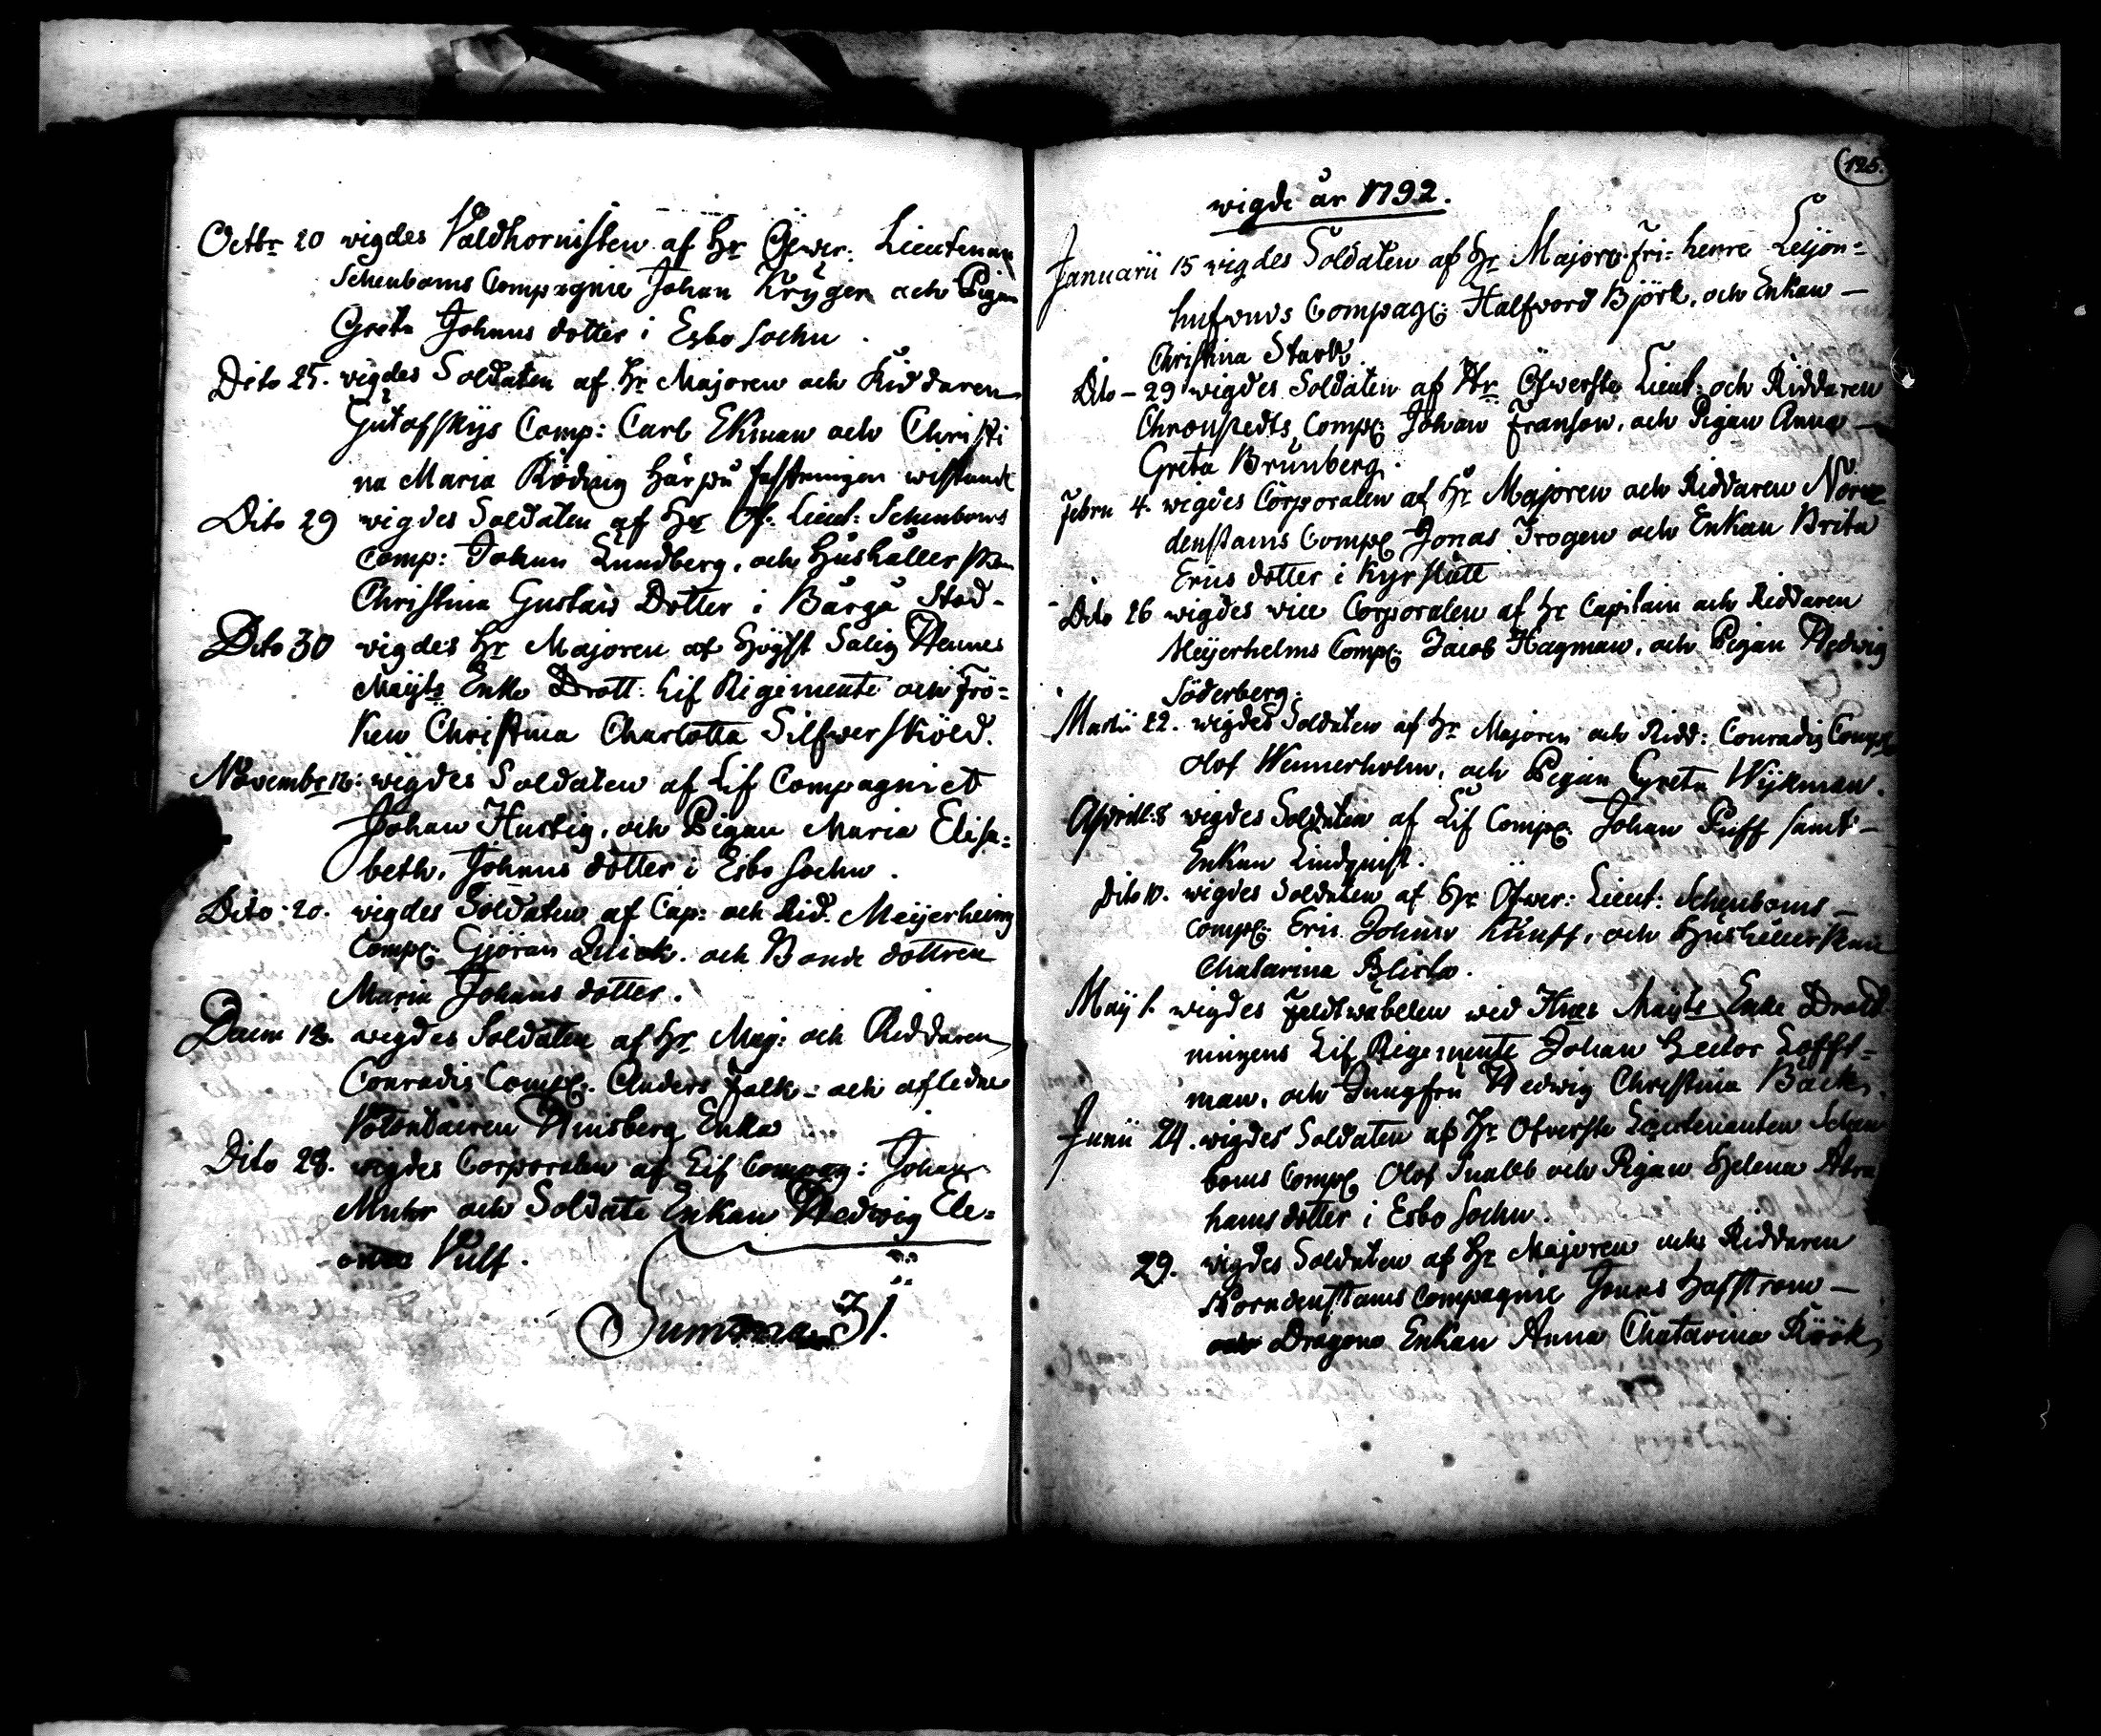 Octbr 20 wigdes Valdhornisten af Hr Öfwer: Lieutenan
Schenboms Compagnie Johan Krÿger och Pigan
Greta Johans dotter i Esbo Sochn.
Dito 25. wigdes Soldaten af Hr Majoren och Riddaren
Gutofskÿs Comp: Carl Ekman och Christi
na Maria Röding här på fästningen wistande
Dito 29 wigdes Soldaten af Hr Öf. Lieut: Schenboms
Comp: Johan Lundberg, och Hushållerskan
Christina Gustavs Dotter i Bårgå Stad-
Dito 30 wigdes Hr Majoren af Högst Salig Hennes
Maÿts Enke Drott. Lif Regimente och Frö=
ken Christina Charlotta Silfwersköld.
Novembr 16: wigdes Soldaten af Lif Compagniet
Johan Hurtig, och Pigan Maria Elisa=
beth, Johans dotter i Esbo Sochn.
Dito 20. wigdes Soldaten af Cap: och Rid. Meijerheims
Comp: Gjöran Quick. och Bonde dottren
Maria Johans dotter.
Decem 18. wigdes Soldaten af Hr Maj: och Riddaren
Conradis Comp: Anders Falk - och afledne
Volontairen Winsberg Enka
Dito 28. wigdes Corporalen af Lif Compag: Johan
Muhr och Soldate Enkan Hedwig Ele=
Vulf.
Summa 31.
125.
wigde år 1792.
Januarii 15 wigdes Soldaten af Hr Majoren Fri=herre Leijon=
hufvuds Compag: Halfvord Björk, och Enkan —
Christina Stark.
Dito - 29 wigdes Soldaten af Hr Öfwerste Lieut: och Riddaren
Chronstedts Comp: Johan Franson, och Pigan Anna —
Greta Brunberg.
Febru 4. wigdes Corporalen af Hr Majoren och Riddaren Norde
denstams Comp: Jonas Frogen och Enkan Brita
Erics dotter i Kyrslätt
Dito 26 wigdes vice Corporalen af Hr Capitain och Riddaren
Meijerhelms Comp: Jacob Hagman, och Pigan Hedwig
Söderberg.
Martii 22. wigdes Soldaten af Hr Majoren och Ridd: Conradis Comp:
Olof Wennerholm, och Pigan Greta Wijkman.
Aprill: 8 wigdes Soldaten af Lif Comp: Johan Puff samt —
Enkan Lindquist.
Dito 10. wigdes Soldaten af Hr Öfwer: Lieut: Schenboms —
Comp: Eric Johan Runff, och Hushållerskan
Chatarina
Maÿ 1. wigdes Feldtwäbelen wid Hnes Maÿts Enke Drott
ningens Lif Regimente Johan Hector Löfft=
man, och Jungfru Hedwig Christina Bäck.
Junii 24. wigdes Soldaten af Hr Öfverste Lieutenanten Schen
boms Comp: Olof Snabb och Pigan Helena Abra
hams dotter i Esbo Sochn.
29. wigdes Soldaten af Hr Majoren och Riddaren
Nordenstams Compagnie Jonas Haffstrom —
och Dragone Enkan Anna Chatarina Röök